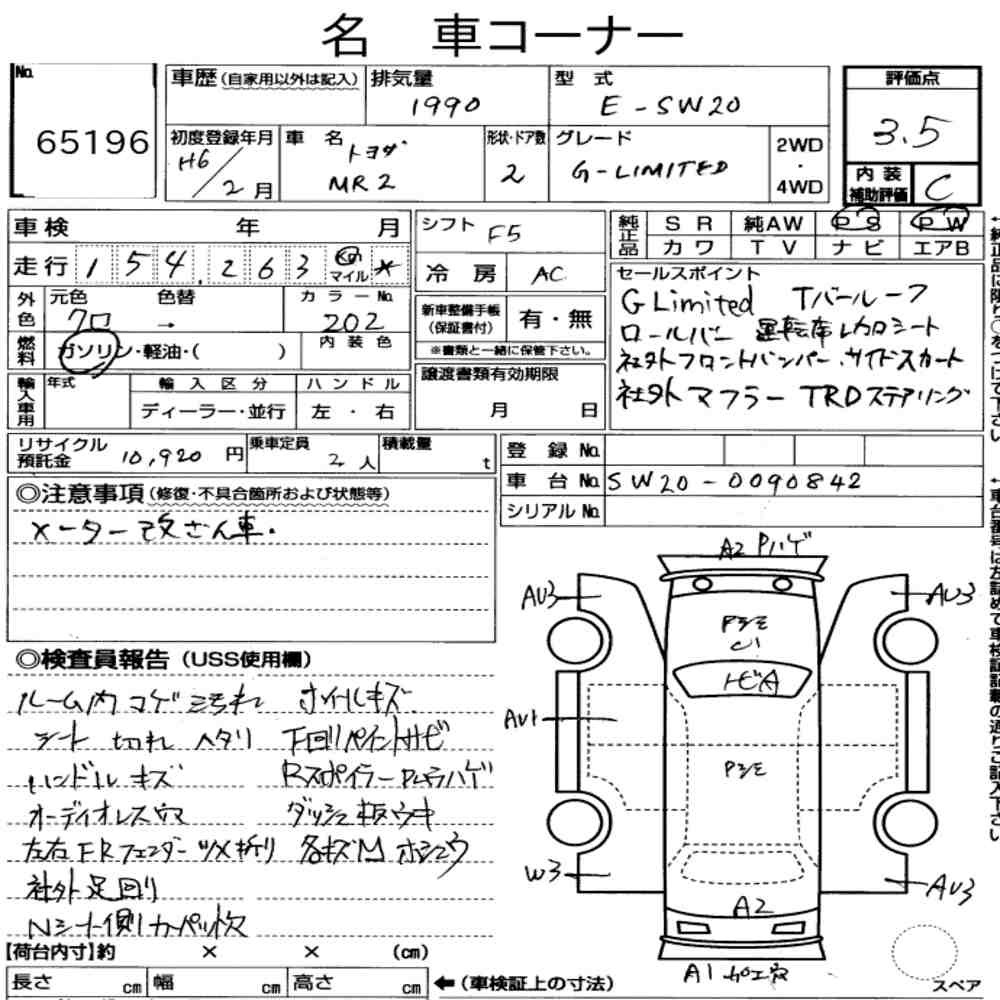 名 車コーナー
No. 65196
車歴 (自家用以外は記入)
排気量 1990
型式 E-SW20
評価点 3.5
初度登録年月 H6/2月
車名 トヨダ MR2
形状・ドア数 2
グレード G-LIMITED
2WD・4WD
内装補助評価 C
車検 年 月
シフト F5
純正品 SR 純AW PS PW
カワ TV ナビ エアB
走行 154,263 km マイル *
冷房 AC
外色 元色 クロ 色替 → カラーNo. 202
内装色
新車整備手帳(保証書付) 有・無
※書類と一緒に保管下さい。
燃料 ガソリン・軽油・( )
セールスポイント
G Limited Tバールーフ
ロールバー 運転席レカロシート
社外フロントバンパー.サイドスカート
社外マフラー TRDステアリング
輸入車用 年式 輸入区分 ハンドル
ディーラー・並行 左・右
譲渡書類有効期限
月 日
リサイクル預託金 10,920円
乗車定員 2人
積載量 t
登録No.
車台No. SW20-0090842
シリアルNo.
◎注意事項(修復・不具合箇所および状態等)
メーター改ざん車.
◎検査員報告(USS使用欄)
ルーム内 コゲ ミ汚れ ホイルキズ
シート 切れ ヘタリ 下回りペイントサビ
ハンドル キズ Rスポイラー Pムラハゲ
オーディオレス穴 ダッシュ板ウキ
左右FRフェンダーツメ折リ 各キズM ホシュウ
社外足回り
Nシート側カーペット欠
A2 Pハゲ
AU3
AU3
Pミモ
トビA
AU1
Pミモ
W3
AU3
A2
A1 加工穴
スペア
【荷台内寸】約 × × (cm)
長さ cm 幅 cm 高さ cm ←(車検証上の寸法)